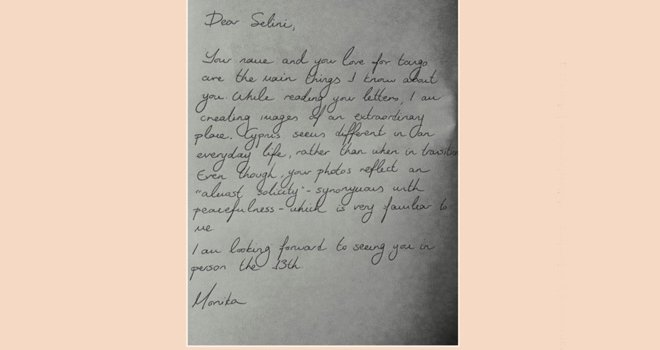 Dear Selini,
Your name and your love for tango
are the main things I know about
you. While reading your letters, I am
creating images of an extraordinary
place. Cyprus seems different in an
everyday life, rather than when in transition
Even though, your photos reflect an
"almost solicity" - synonymous with
peacefulness - which is very familiar to
me
I am looking forward to seeing you in
person the 13th
Monika